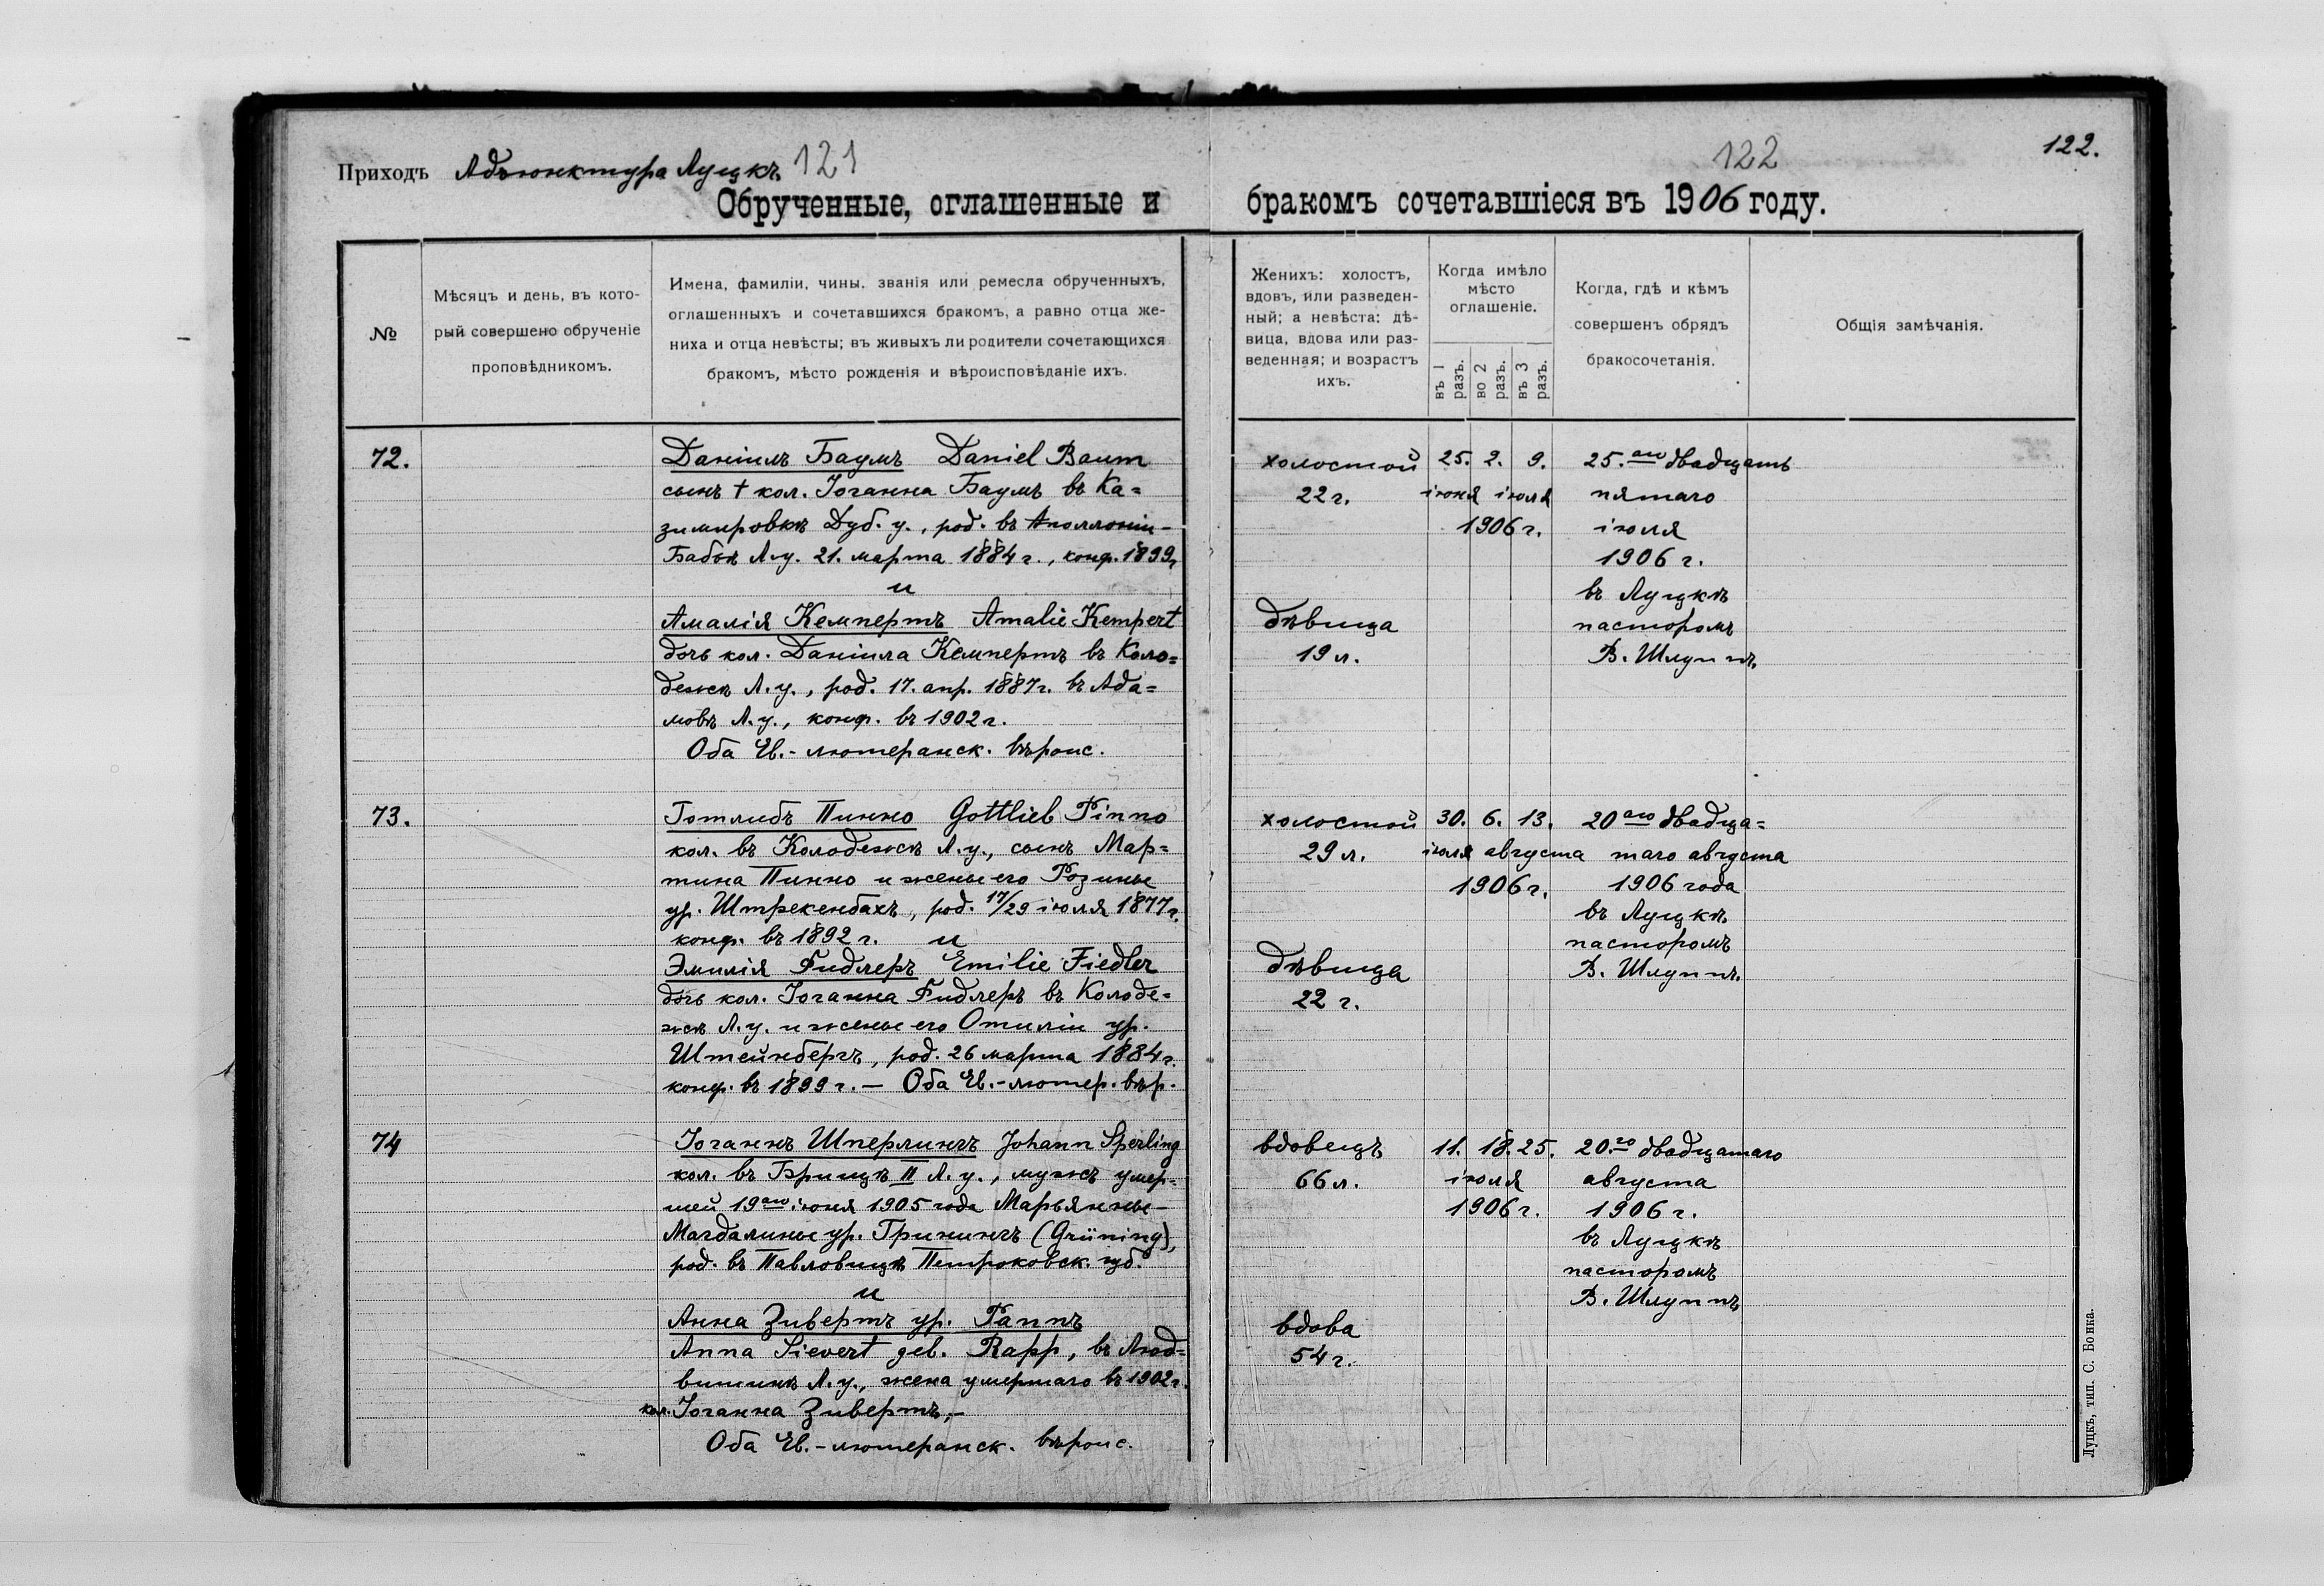 Приходъ Адъюнктура Луцкъ 121
Обрученные, оглашенные и
№
Мѣсяцъ и день, въ кото-
рый совершено обрученіе
проповѣдникомъ.
Имена, фамиліи, чины, званія или ремесла обрученныхъ,
оглашенныхъ и сочетавшихся бракомъ, а равно отца же-
ниха и отца невѣсты; въ живыхъ ли родители сочетающихся
бракомъ, мѣсто рожденія и вѣроисповѣданіе ихъ.
72.
Даніилъ Баумъ Daniel Baum
сынъ † кол. Іоганна Баумъ въ Ка=
зимировкѣ Дуб. у., род. въ Аполлоніи-
Бабѣѣ Л.у. 21. марта 1884 г., конф. 1899
и
Амалія Кемпертъ Amalie Kempert
дочь кол. Даніила Кемпертъ въ Коло=
дежѣ Л.у., род. 17. апр. 1887г. въ Ада=
мовѣ Л.у., конф. въ 1902 г.
Оба Ев.-лютеранск. вѣроис.
73.
Готлибъ Пинно Gottlieb Pinno
кол. въ Колодежѣ Л.у., сынъ Мар=
тина Пинно и жены его Розины
ур. Штрекенбахъ, род. 17/29 іюля 1877г.
конф. въ 1892 г. и
Эмилія Фидлеръ Emilie Fiedler
дочь кол. Іоганна Фидлеръ въ Колоде=
жѣ Л.у. и жены его Отиліи ур.
Штейнбергъ, род. 26 марта 1884 г.
конф. въ 1899 г. — Оба Ев.-лютер. вѣр.
74
Іоганнъ Шперлингъ Johann Sperling
кол. въ Брищѣ II Л.у., мужъ умер=
шей 19аго іюня 1905 года Марьянны-
Магдалины ур. Грининъ (Grüning),
род. въ Павловицѣ Петроковск. губ.
и
Анна Зивертъ ур. Раппъ
Anna Sievert geb. Rapp, въ Люд=
вишинѣ Л.у., жена умершаго въ 1902 г.
кол. Іоганна Зивертъ,-
Оба Ев.-лютеранск. вѣроис.
122
122.
бракомъ сочетавшіеся въ 1906 году.
Женихъ: холостъ,
вдовъ, или разведен-
ный; а невѣста: дѣ-
вица, вдова или раз-
веденная; и возрастъ
ихъ.
Когда имѣло
мѣсто
оглашеніе.
въ 1 разъ.
во 2 разъ.
въ 3 разъ.
Когда, гдѣ и кѣмъ
совершенъ обрядъ
бракосочетанія.
Общія замѣчанія.
холостой 25. 2. 9. 25.аго двадцать
22 г. іюня іюля пятаго
1906 г. іюля
1906 г.
въ Луцкѣ
дѣвица пасторомъ
19 л. В. Шлуппъ
холостой 30. 6. 13. 20аго двадца=
29 л. іюля августа таго августа
1906 г. 1906 года
въ Луцкѣ
пасторомъ
дѣвица В. Шлуппъ.
22 г.
вдовецъ 11. 18. 25. 20.го двадцатаго
66 л. іюля августа
1906 г. 1906 г.
въ Луцкѣ
пасторомъ
В. Шлуппъ
вдова
54 г.
Луцкъ, тип. С. Бонка.